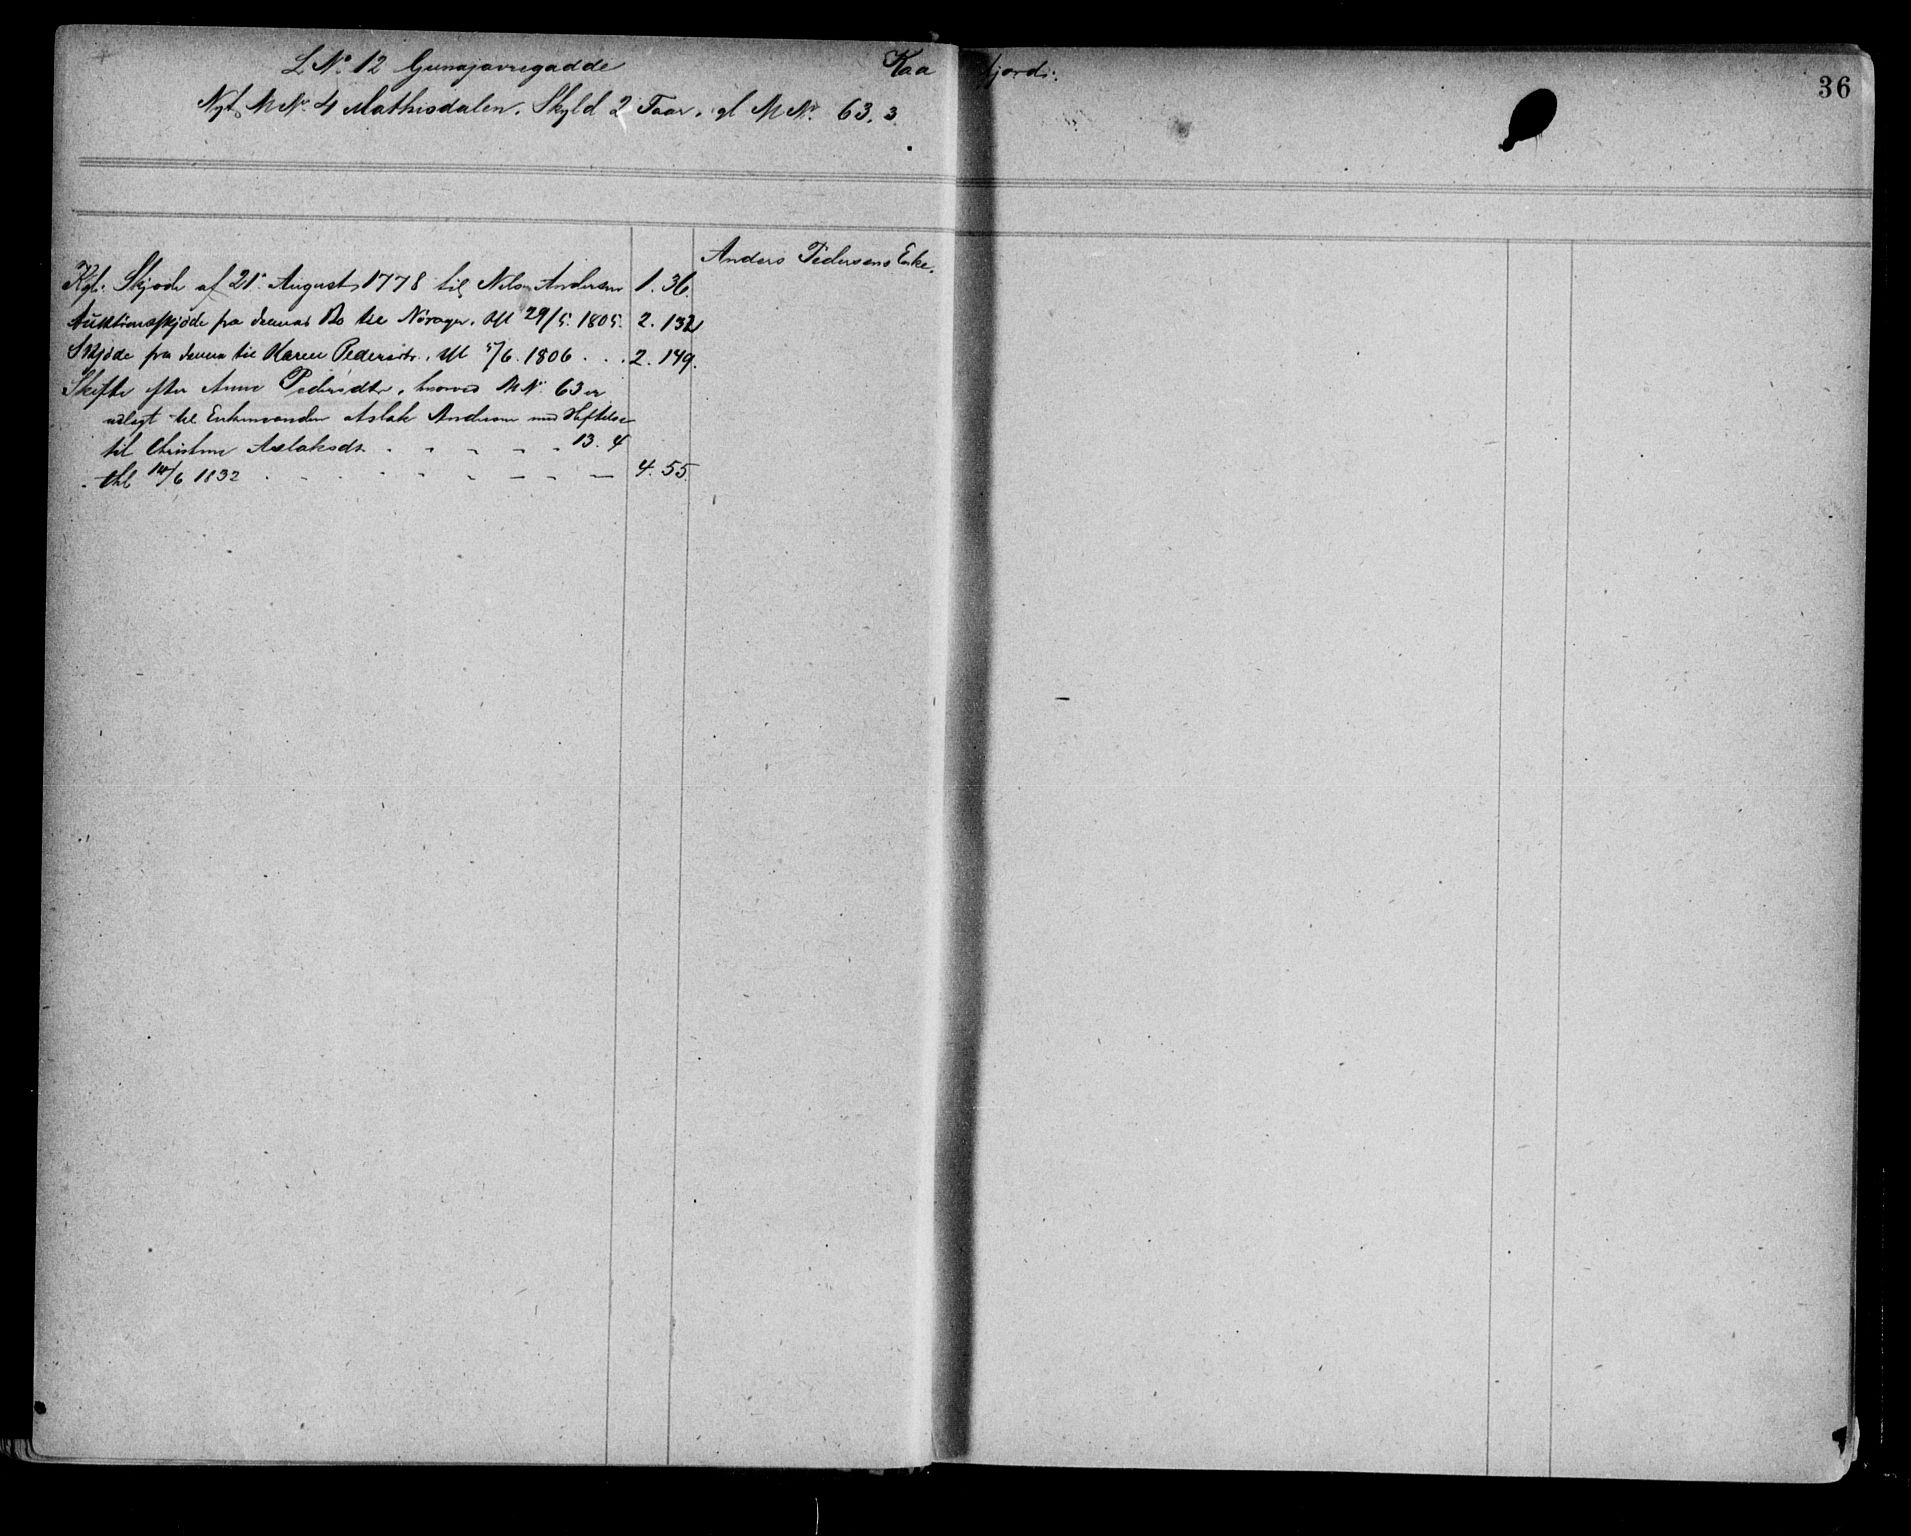 L No. 12 Gunajavregadde Kaafjord.
36
Nyt M No. 4 Mathisdalen. Skyld 2 Faar. gl M No. 63. 3.
Anders Pedersens Enke.
Kgl. Skjøde af 21. August 1778 til Nils Andersen 1. 36.
Auktionsskjøde fra dennes Bo til Norager. thl 29/5. 1805. 2. 132
Skjøde fra denne til Karen Pedersdtr. thl 5/6. 1806 . . . 2. 149.
Skifte efter Anne Pedersdtr, hvorved M No. 63 er
udlagt til Enkemanden Aslak Andersen med Heftelse
til Christine Aslaksdt. - - - - - 13. 4
thl 14/6 1832 - - - - - - - - - 4. 55.